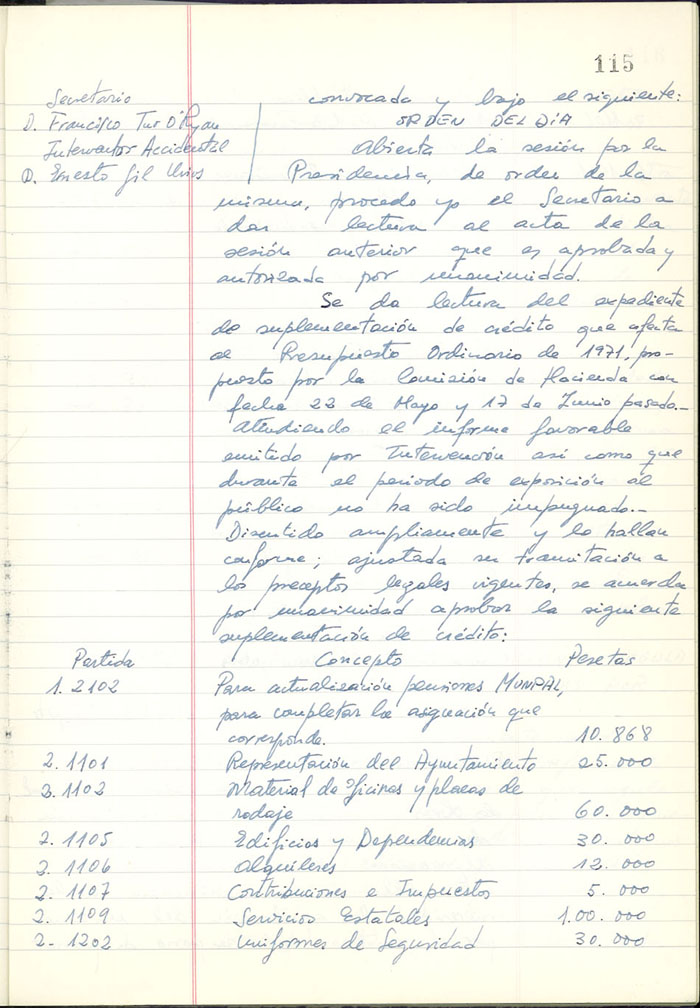 115
Secretario
D. Francisco Tur O'Ryan
Interventor Accidental
D. Ernesto Gil
convocada y bajo el siguiente:
ORDEN DEL DÍA
Abierta la sesión por la
Presidencia, de orden de la
misma, procedo yo el Secretario a
dar lectura al acta de la
sesión anterior que es aprobada y
autorizada por unanimidad.
Se da lectura del expediente
de suplementación de crédito que afecta
al Presupuesto Ordinario de 1971, pro-
puesto por la Comisión de Hacienda con
fecha 22 de Mayo y 17 de Junio pasado.-
Atendiendo el informe favorable
emitido por Intervención así como que
durante el periodo de exposición al
público no ha sido impugnado.-
Discutido ampliamente y lo hallan
conforme; ajustada su tramitación a
los preceptos legales vigentes, se acuerda
por unanimidad aprobar la siguiente
suplementación de crédito:
Partida Concepto Pesetas
1. 2102 Para actualización pensiones MUNPAL,
para completar la asignación que
corresponde. 10.868
2. 1101 Representación del Ayuntamiento 25.000
2. 1102 Material de Oficinas y placas de
rodaje 60.000
2. 1105 Edificios y Dependencias 30.000
2. 1106 Alquileres 12.000
2. 1107 Contribuciones e Impuestos 5.000
2. 1109 Servicios Estatales 1.00.000
2. 1202 Uniformes de Seguridad 30.000